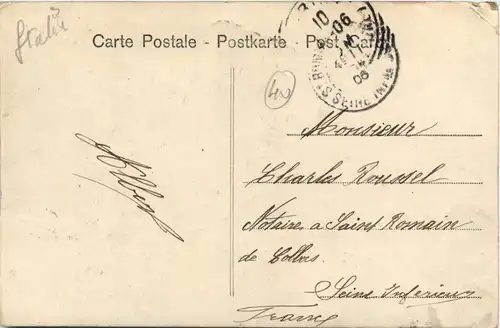 Italie
Carte Postale - Postkarte - Post Card
10
06
06
SEINE INF
400
Albert
Monsieur
Charles Roussel
Notaire a Saint Romain
de Colbos
Seine Inferieure
France